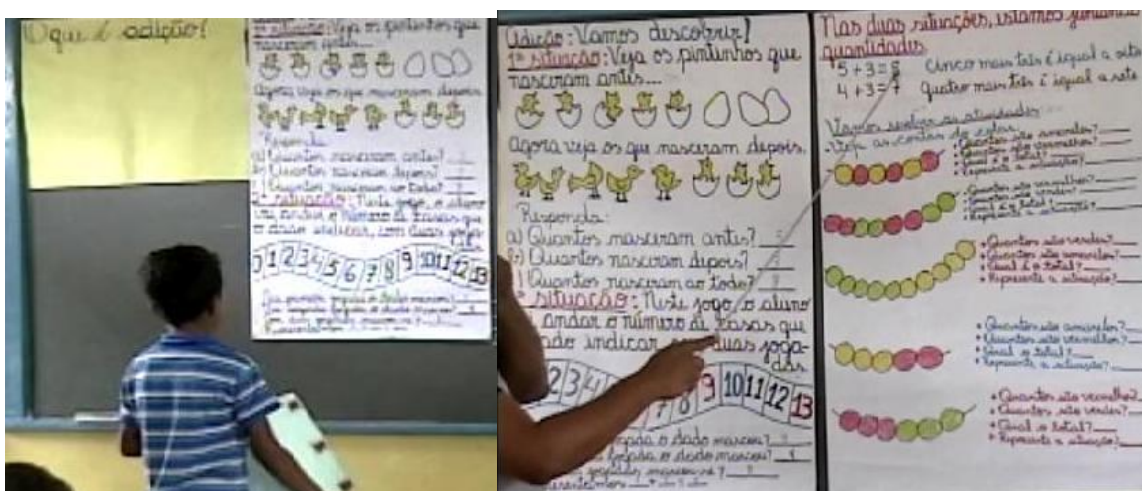 O que é adição?
1ª situação: Veja os pintinhos que
nasceram antes...
Agora veja os que nasceram depois.
Responda:
a) Quantos nasceram antes?
b) Quantos nasceram depois?
Quantos nasceram ao todo?
2ª situação: Neste jogo, o aluno
vai andar o número de casas que
o dado indicar, com duas joga-
das.
0 1 2 3 4 5 6 7 8 9 10 11 12 13
Adição: Vamos descobrir!
1ª situação: Veja os pintinhos que
nasceram antes...
Agora veja os que nasceram depois.
Responda:
a) Quantos nasceram antes? 5
b) Quantos nasceram depois?
Quantos nasceram ao todo?
situação: Neste jogo, o aluno
andar o número de casas que
dado indicar duas joga-
das.
2 3 4 7 8 9 10 11 12 13
jogada o dado marcou?
jogada o dado marcou? 4
jogadas marcou-se?
Nas duas situações, estamos juntando
quantidades.
5 + 3 = 8 Cinco mais três é igual a oito
4 + 3 = 7 Quatro mais três é igual a sete
Vamos resolver as atividades
Veja as contas do colar.
• Quantos são amarelos?
• Quantos são vermelhos?
• Qual é o total?
• Represente a situação!
• Quantos são vermelhos?
• Quantos são verdes?
• Qual é o total?
• Represente a situação!
• Quantos são verdes?
• Quantos são amarelos?
• Qual é o total?
• Represente a situação!
• Quantos são amarelos?
• Quantos são vermelhos?
• Qual o total?
• Represente a situação!
• Quantos são vermelhos?
• Quantos são verdes?
• Qual o total?
• Represente a situação!